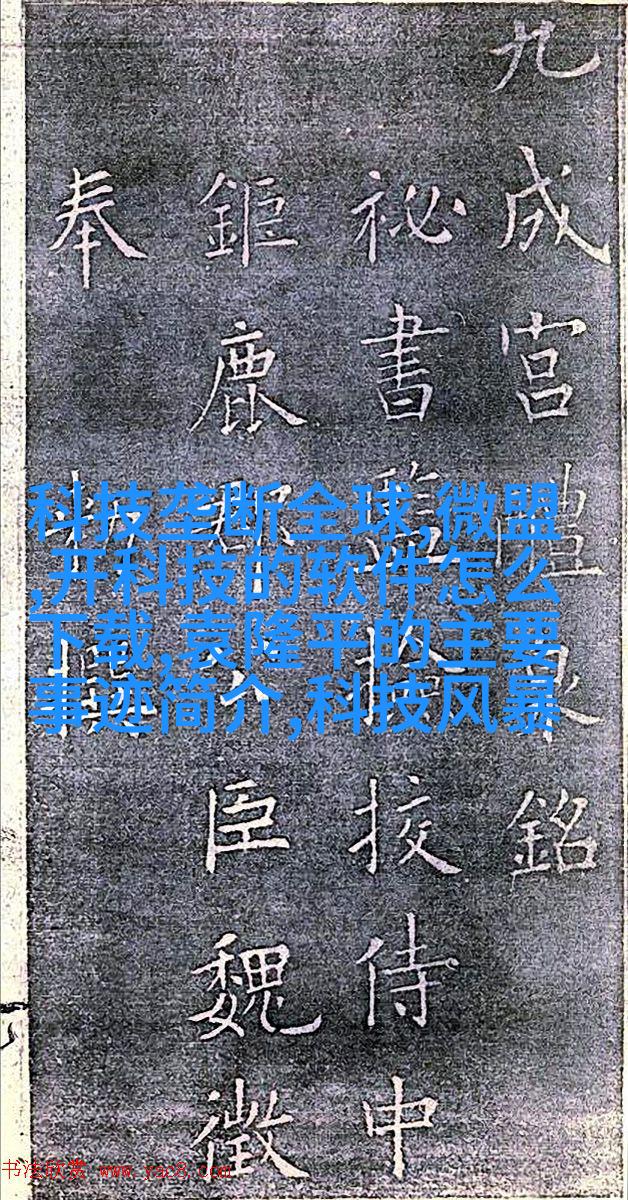 九成宮銘
祕書監挍侍中
鉅鹿臣魏徵
奉
科技垄断全球,微盟
,开科技的软件怎么
下载,袁隆平的主要
事迹简介,科技风暴
书法欣赏 www.yac8.com